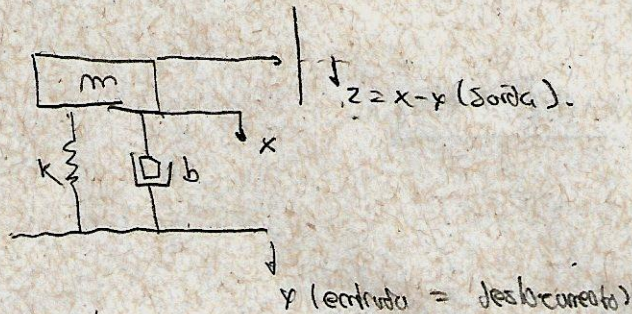 m
z = x - y (Saída).
x
K
b
y (entrada = deslocamento)